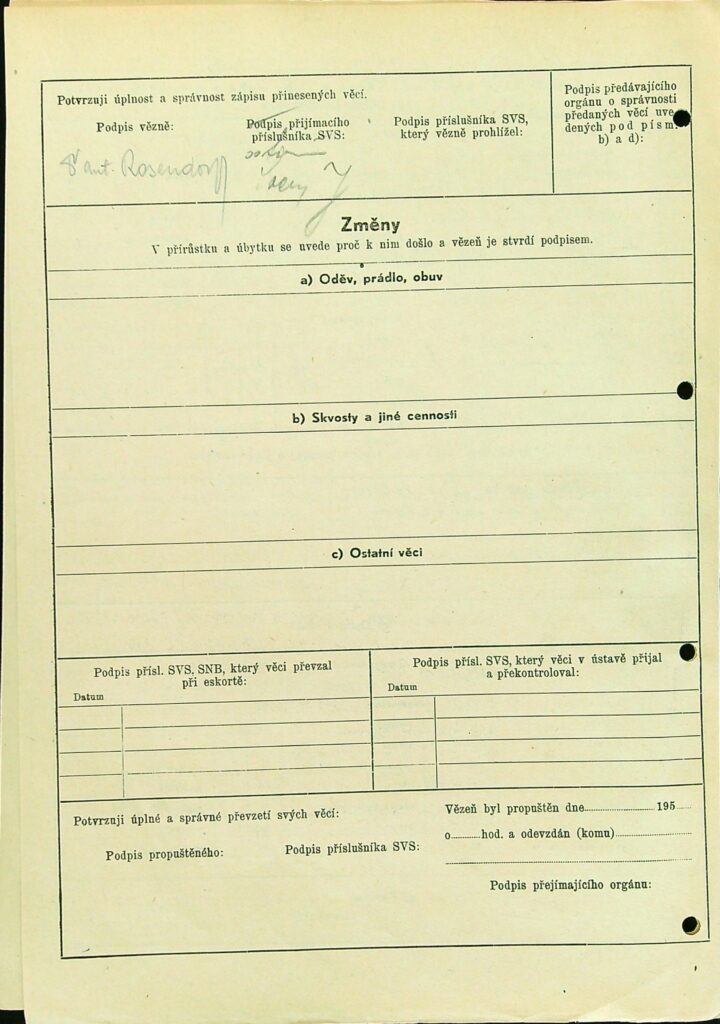 Potvrzuji úplnost a správnost zápisu přinesených věcí.
Podpis vězně:
Podpis přijímacího
příslušníka SVS:
Podpis příslušníka SVS,
který vězně prohlížel:
Podpis předávajícího
orgánu o správnosti
předaných věcí uve-
dených pod písm.
b) a d):
Rosendorff
Změny
V přírůstku a úbytku se uvede proč k nim došlo a vězeň je stvrdí podpisem.
a) Oděv, prádlo, obuv
b) Skvosty a jiné cennosti
c) Ostatní věci
Podpis přísl. SVS, SNB, který věci převzal
při eskortě:
Datum
Podpis přísl. SVS, který věci v ústavě přijal
a překontroloval:
Datum
Potvrzuji úplné a správné převzetí svých věcí:
Podpis propuštěného:
Podpis příslušníka SVS:
Vězeň byl propuštěn dne 195
o hod. a odevzdán (komu)
Podpis přejímajícího orgánu: